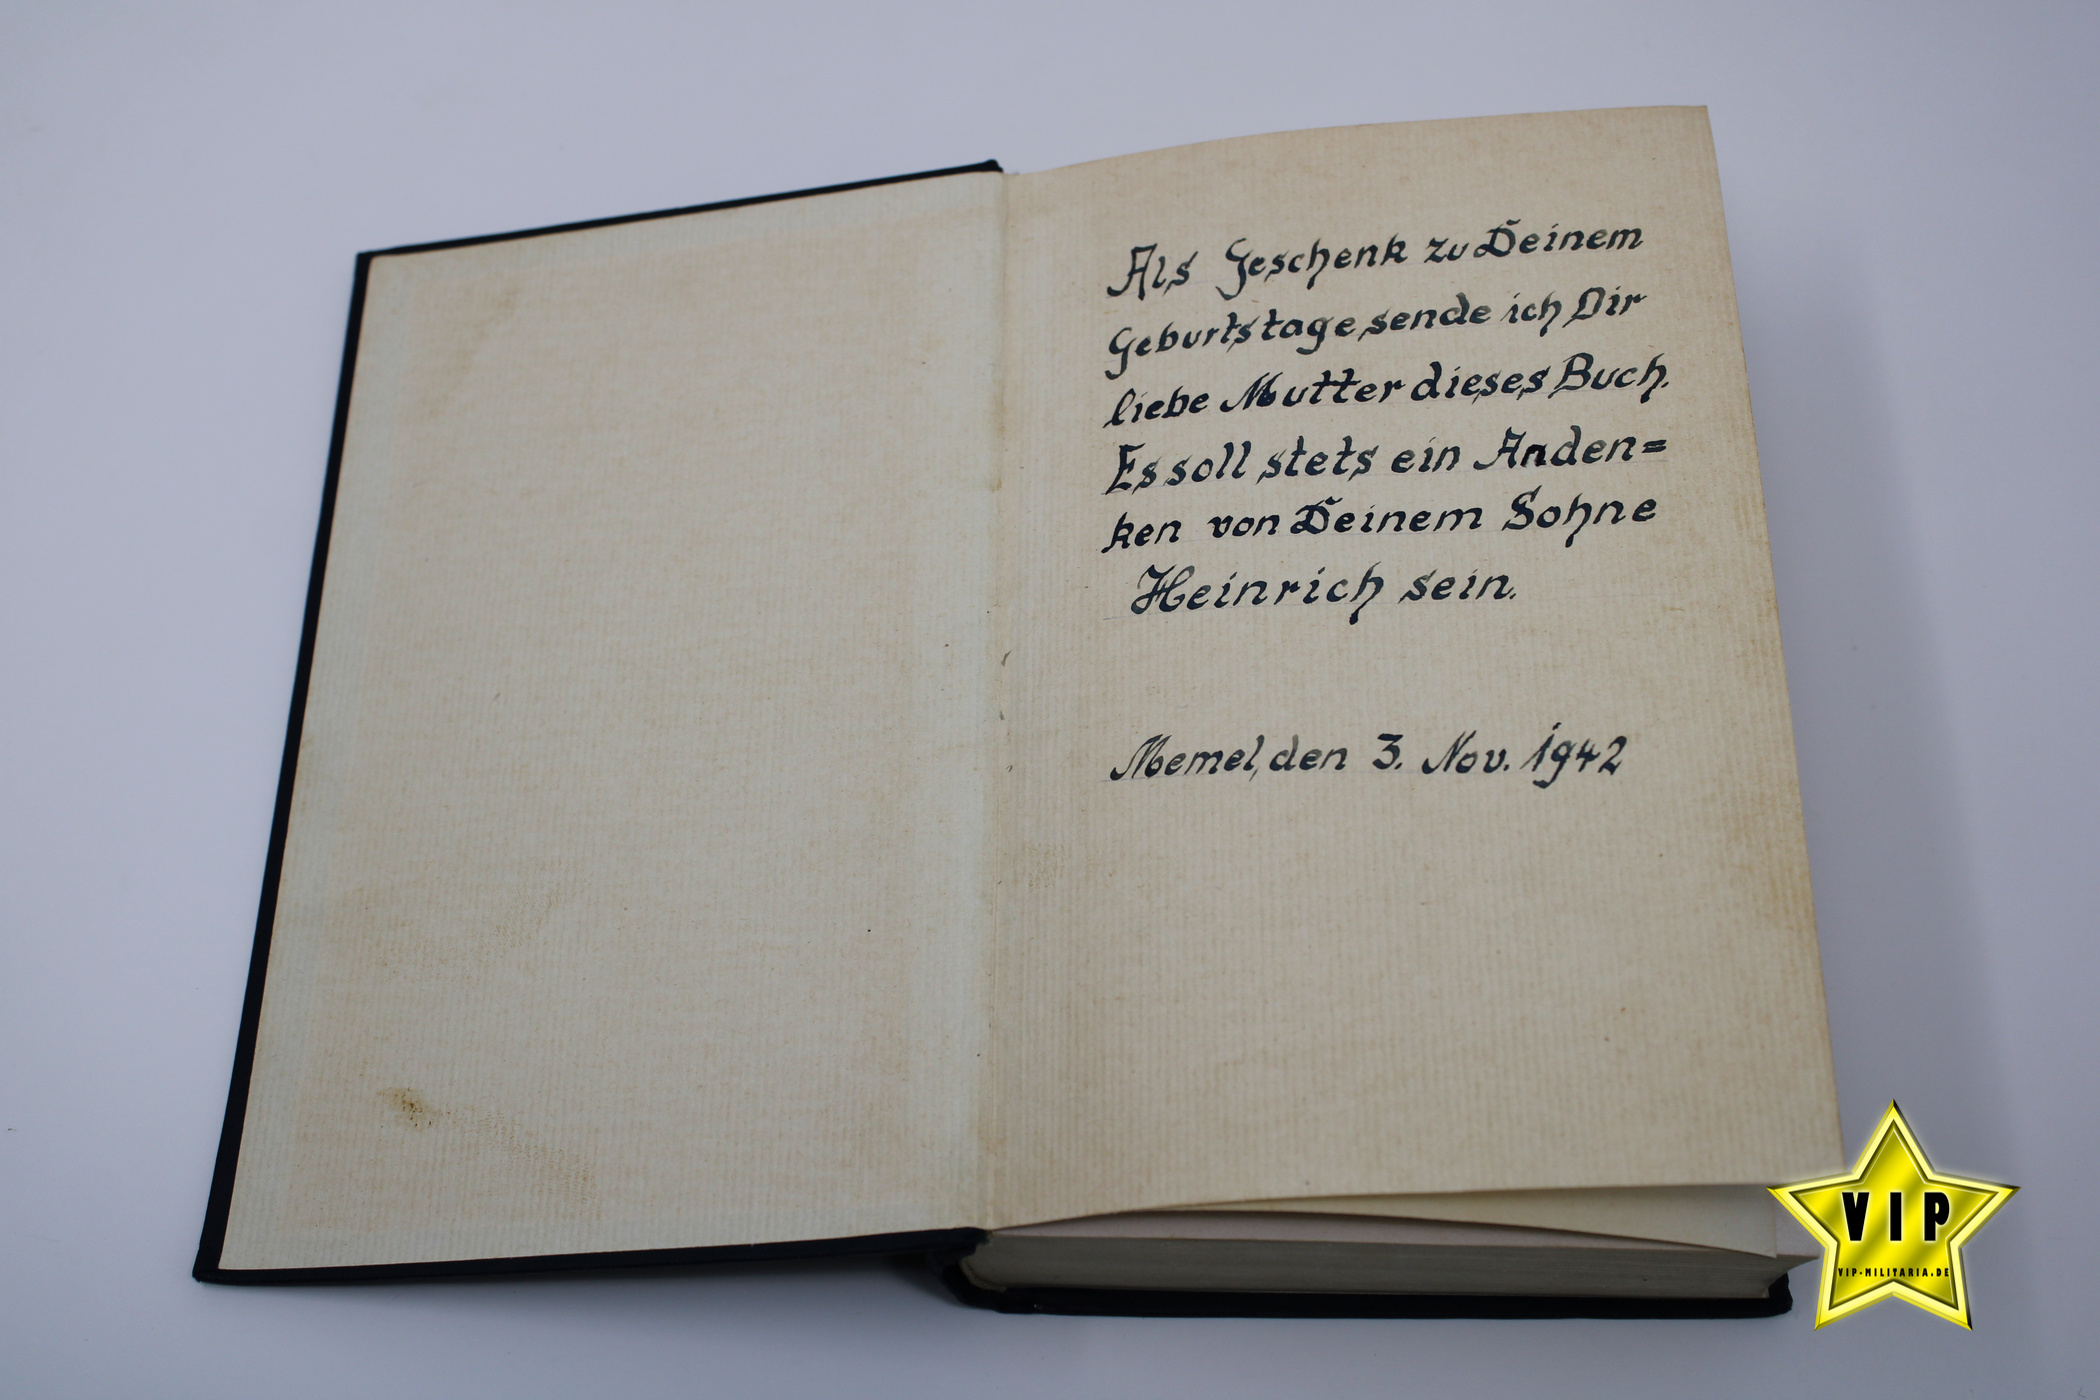 Als Geschenk zu Deinem
Geburtstage sende ich Dir
liebe Mutter dieses Buch.
Es soll stets ein Anden=
ken von Deinem Sohne
Heinrich sein.
Memel, den 3. Nov. 1942
VIP
VIP-MILITARIA.DE